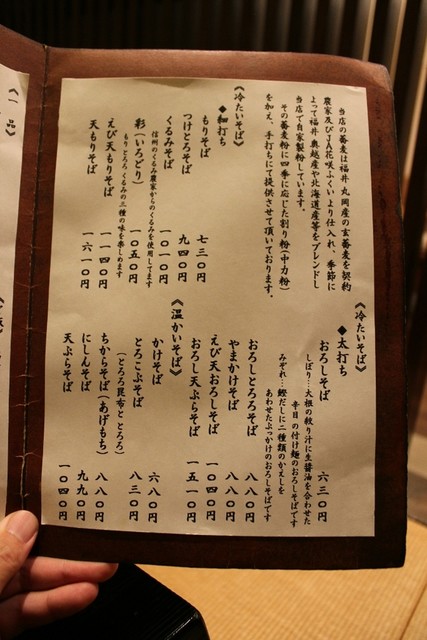 当店の蕎麦は福井 丸岡産の玄蕎麦を契約
農家及びJA花咲ふくいより仕入れ、季節に
よって福井 奥越産や北海道産等をブレンドし
当店で自家製粉しています。
その蕎麦粉に四季に応じた割り粉(中力粉)
を加え、手打ちにて提供させて頂いております。
《冷たいそば》
◆細打ち
もりそば 七三〇円
つけとろそば 九四〇円
くるみそば 一〇一〇円
信州のくるみ農家からのくるみを使用してます
彩(いろどり) 一〇五〇円
もり とろろ くるみの三種の味を楽しめます
えび天もりそば 一一四〇円
天もりそば 一六一〇円
《冷たいそば》
◆太打ち
おろしそば 六三〇円
しぼり…大根の絞り汁に生醤油を合わせた
辛目の付け麺のおろしそばです
みぞれ…鰹だしに二種類のかえしを
あわせたぶっかけのおろしそばです
おろしとろろそば 八八〇円
やまかけそば 八八〇円
えび天おろしそば 一〇四〇円
おろし天ぷらそば 一五一〇円
《温かいそば》
かけそば 六八〇円
とろこぶそば 八三〇円
(とろろ昆布ととろろ)
ちからそば(あげもち) 八八〇円
にしんそば 九九〇円
天ぷらそば 一〇四〇円
《一品》